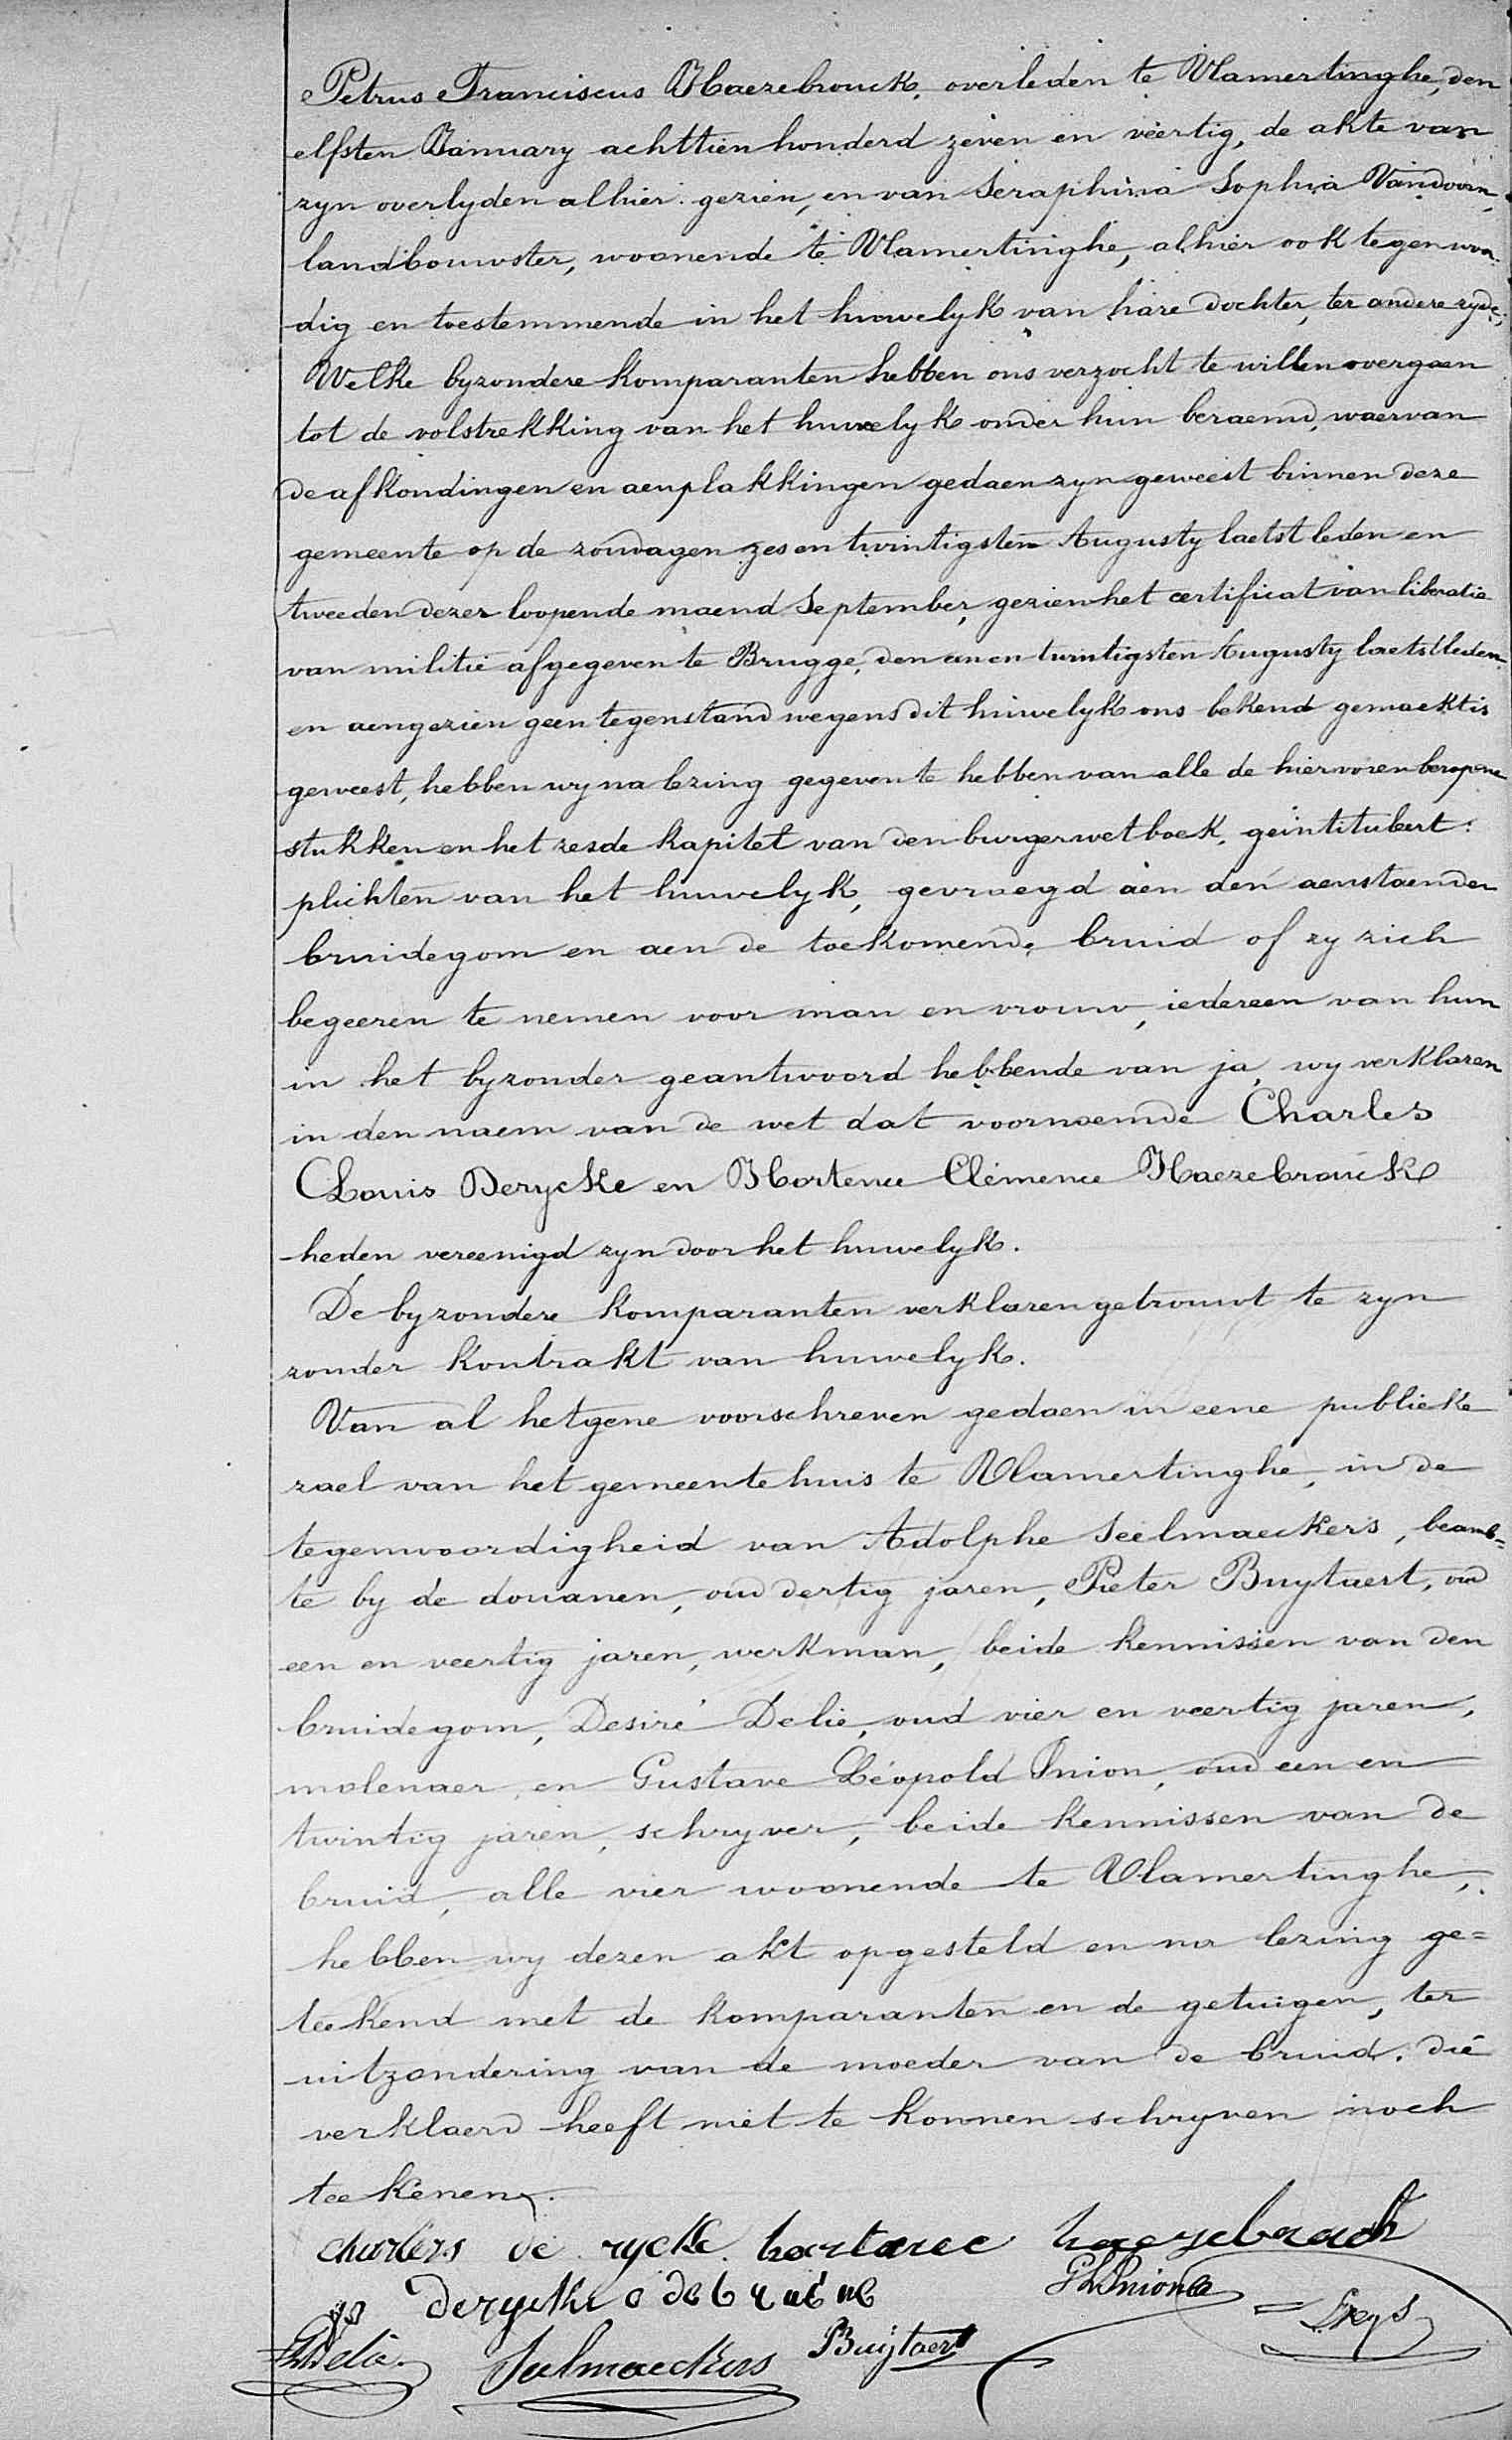 Petrus Franciscus Haezebrouck, overleden te Vlamertinghe, den
elfsten January achttien honderd zeven en veertig, de akte van
zyn overlyden alhier gezien, en van Seraphina Sophia Vandoorn,
landbouwster, woonende te Vlamertinghe, alhier ook tegenwoor-
dig en toestemmende in het huwelyk van hare dochter, ter andere zyde;
Welke byzondere komparanten hebben ons verzocht te willen overgaen
tot de volstrekking van het huwelyk onder hun beraemd, waervan
de afkondingen en aenplakkingen gedaen zyn geweest binnen deze
gemeente op de zondagen zes en twintigsten Augusty laetstleden en
tweeden dezer loopende maend September, gezien het certificat van liberatie
van militie afgegeven te Brugge, den een en twintigsten Augusty laetstleden
en aengezien geen tegenstand wegens dit huwelyk ons bekend gemaekt is
geweest, hebben wy na lezing gegeven te hebben van alle de hiervoren beropene
stukken en het zesde kapitel van den burgerwetboek, geïntituleert:
plichten van het huwelyk, gevraegd aen den aenstaenden
bruidegom en aen de toekomende bruid of zy zich
begeeren te nemen voor man en vrouw, iedereen van hun
in het byzonder geantwoord hebbende van ja, wy verklaren
in den naem van de wet dat voornoemde Charles
Louis Derycke en Hortence Clémence Haezebrouck
heden vereenigd zyn door het huwelyk.
De byzondere komparanten verklaren getrouwt te zyn
zonder kontrakt van huwelyk.
Van al hetgene voorschreven gedaen in eene publieke
zael van het gemeentehuis te Vlamertinghe, in de
tegenwoordigheid van Adolphe Seelmaeckers, beamb=
te by de douanen, oud dertig jaren, Pieter Buytaert, oud
een en veertig jaren, werkman, beide kennissen van den
bruidegom, Desiré Delie, oud vier en veertig jaren,
molenaer, en Gustave Léopold Union, oud een en
twintig jaren, schryver, beide kennissen van de
bruid, alle vier woonende te Vlamertinghe,
hebben wy dezen akt opgesteld en na lezing ge=
teekend met de komparanten en de getuigen, ter
uitzondering van de moeder van de bruid, die
verklaerd heeft niet te konnen schryven noch
teekenen.
charles de rycke hortence haezebrouck
derycke debruine
Delie Seelmaeckers Buijtaert